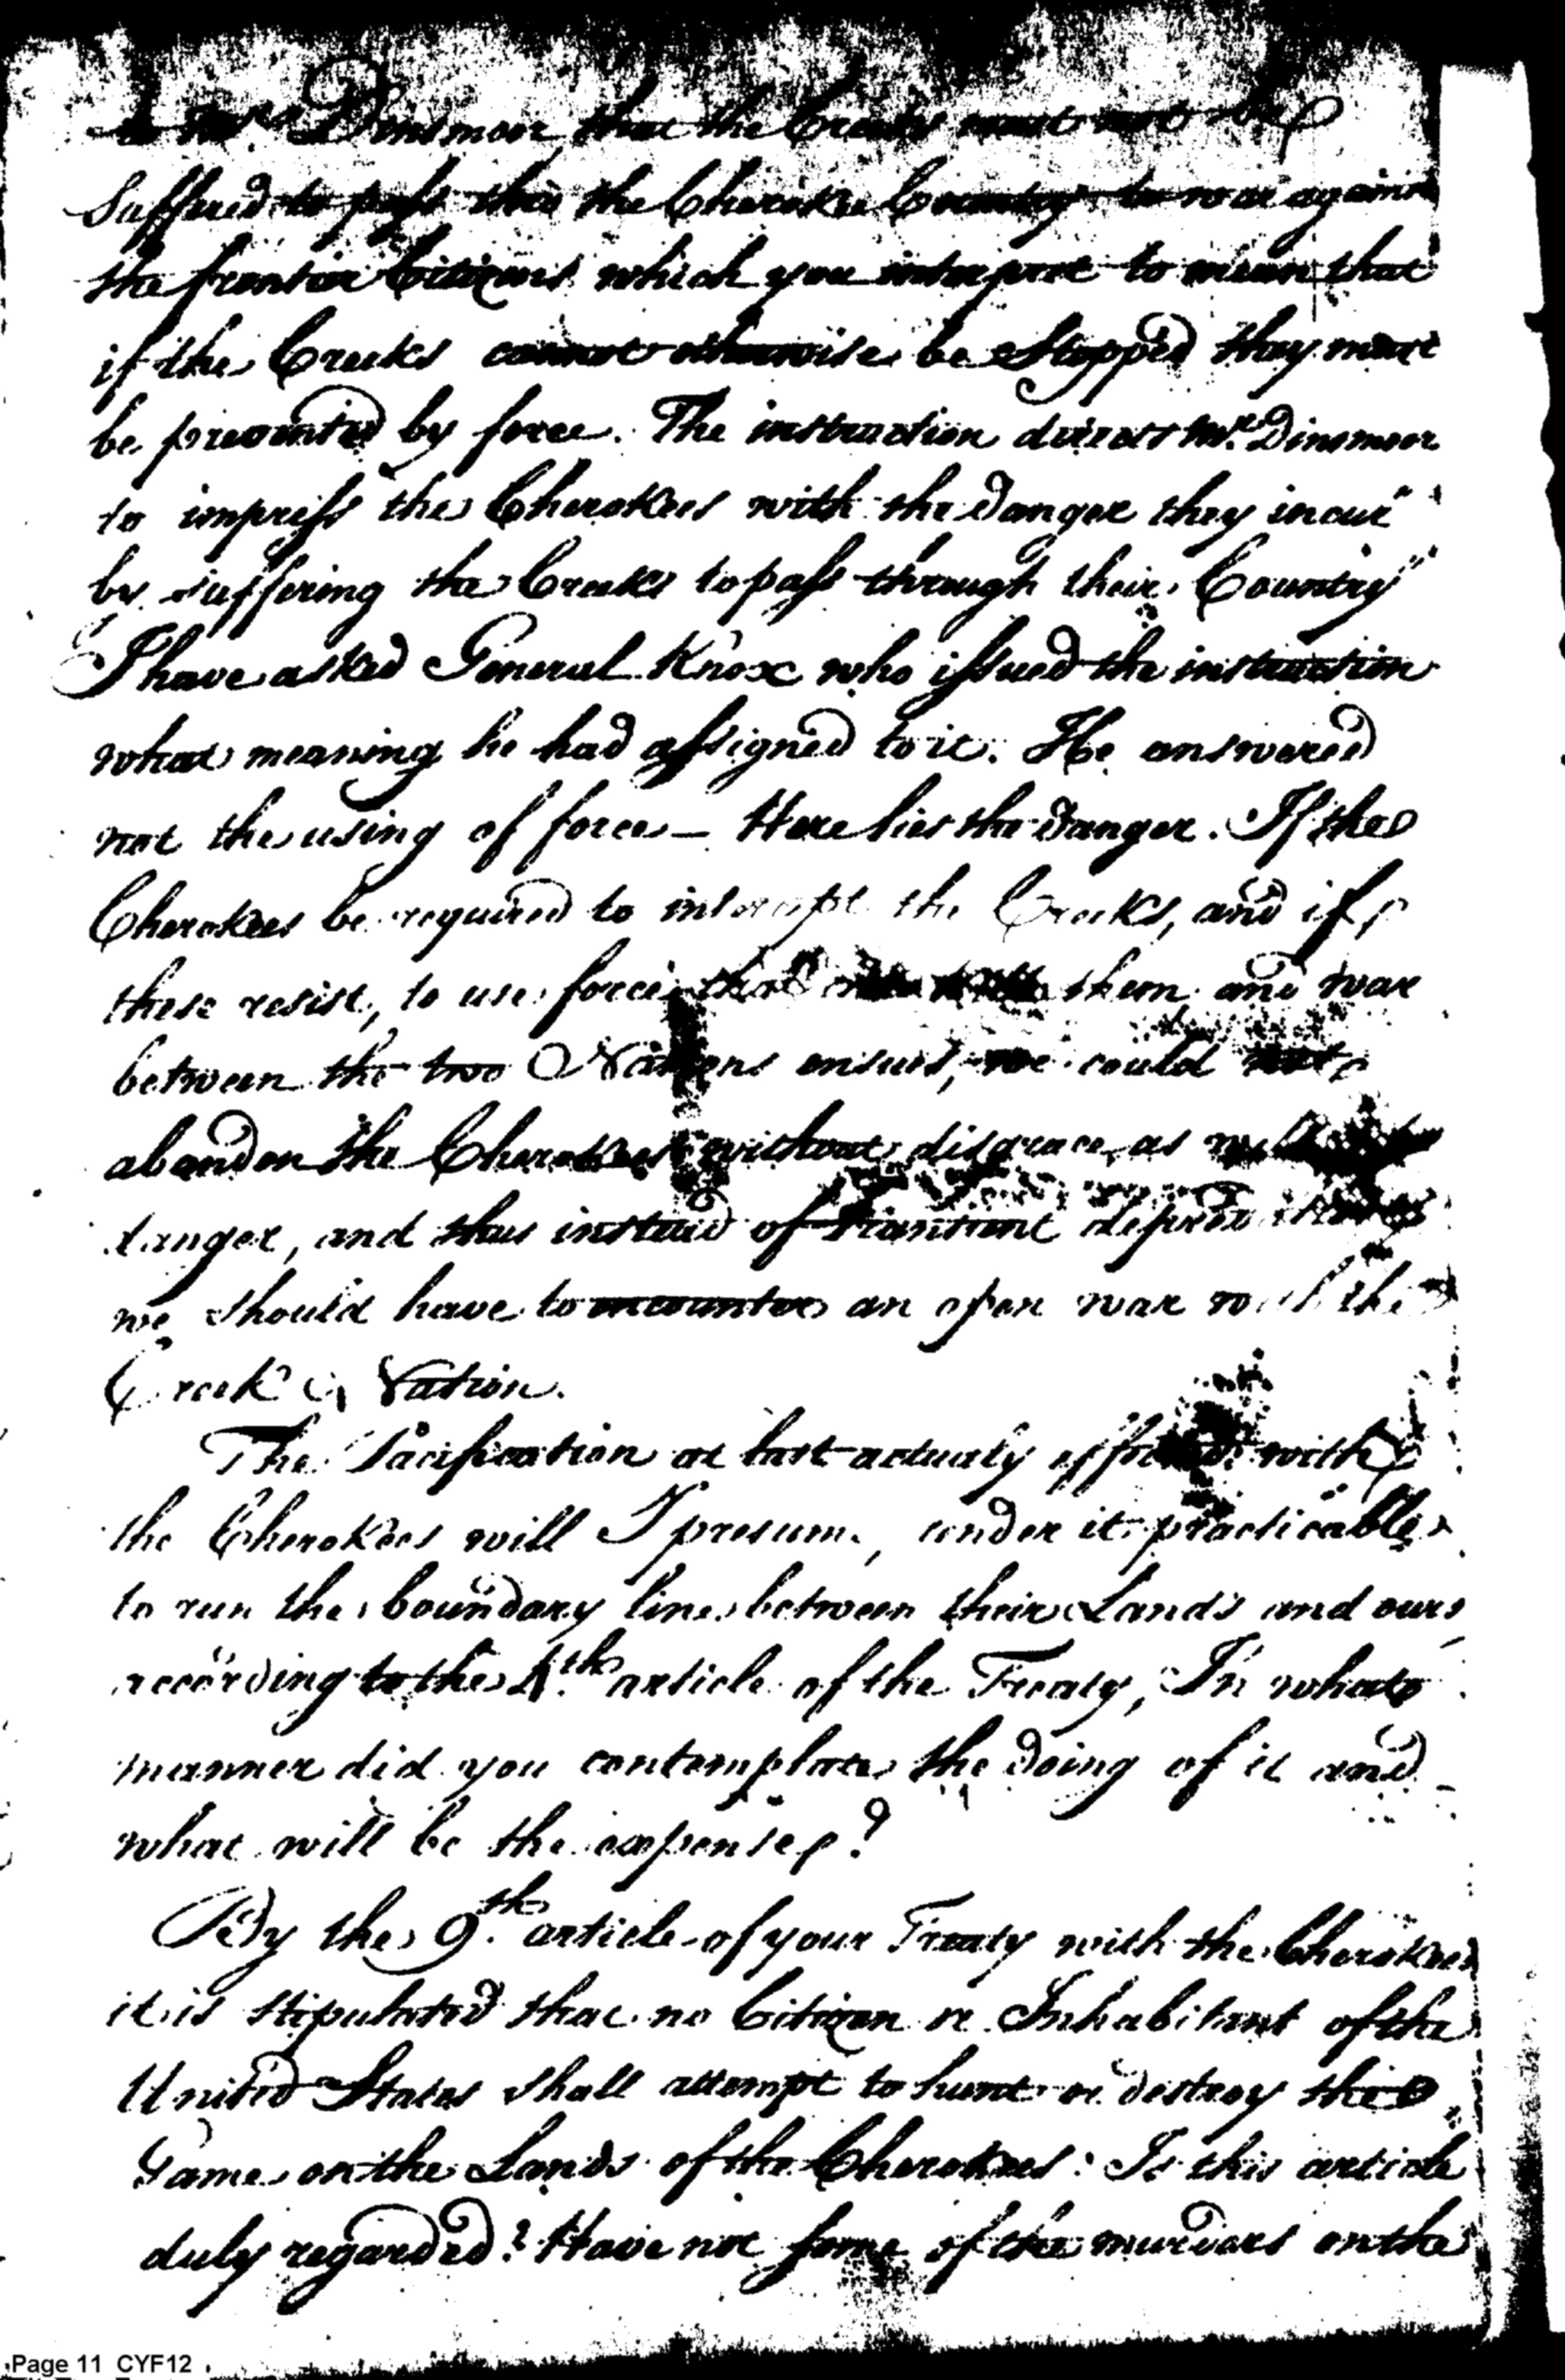 to Mr. Dinsmoor that the Creeks must not be
Suffered to pass thro the Cherokee Country to war against
the frontier Citizens which you interpret to mean that
if the Creeks cannot otherwise be Stopped they must
be prevented by force. The instruction directs Mr. Dinsmoor
to impress the Cherokees with the danger they incur"
by suffering the Creeks to pass through their Country"
I have asked General Knox who issued the instruction
what meaning he had assigned to it. He answered
not the using of force — Here lies the danger. If the
Cherokees be required to intercept the Creeks, and if
these resist, to use force; them and war
between the two Nations ensues, we could not
abandon the Cherokees without disgrace as well as
danger, and thus instead of transient depredations
we should have to encounter an open war with the
Creek Nation.
The Pacification at last actualy effected with
the Cherokees will I presume, render it practicable
to run the boundary line between their Lands and ours
according to the 4th. article of the Treaty, In what
manner did you contemplate the doing of it and
what will be the expense?
By the 9th. article of your Treaty with the Cherokees
it is Stipulated that no Citizen or Inhabitant of the
United States shall attempt to hunt or destroy the
Game on the Lands of the Cherokees: Is this article
duly regarded? Have not some of the murders on the
Page 11 CYF12